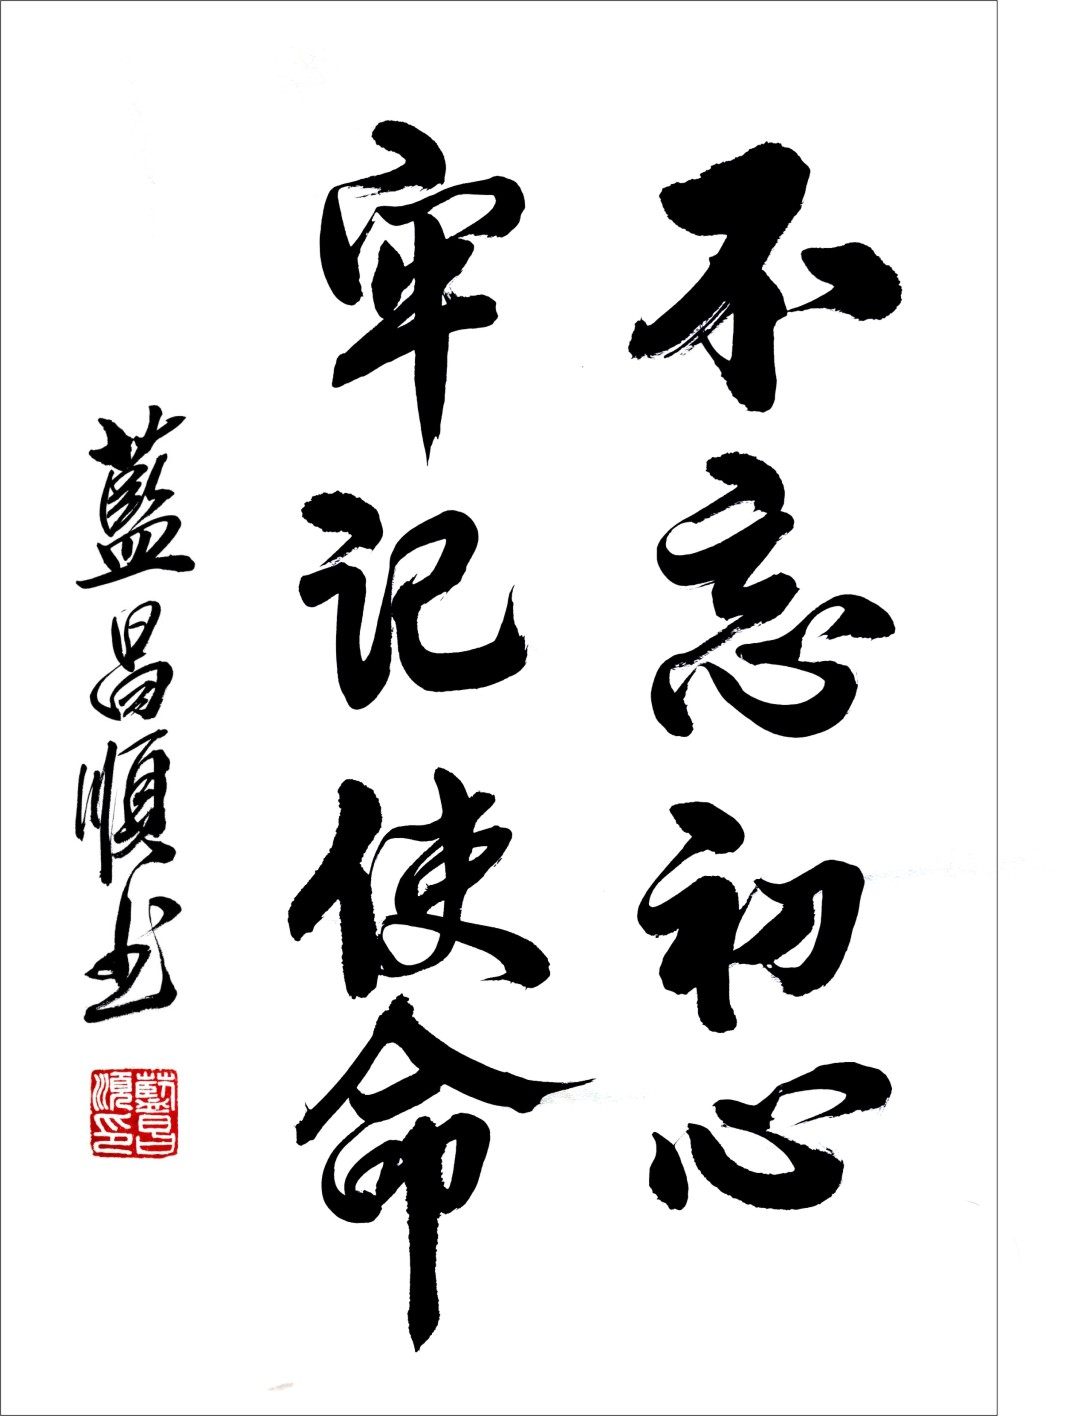 不忘初心
牢记使命
藍昌順书
藍昌順印